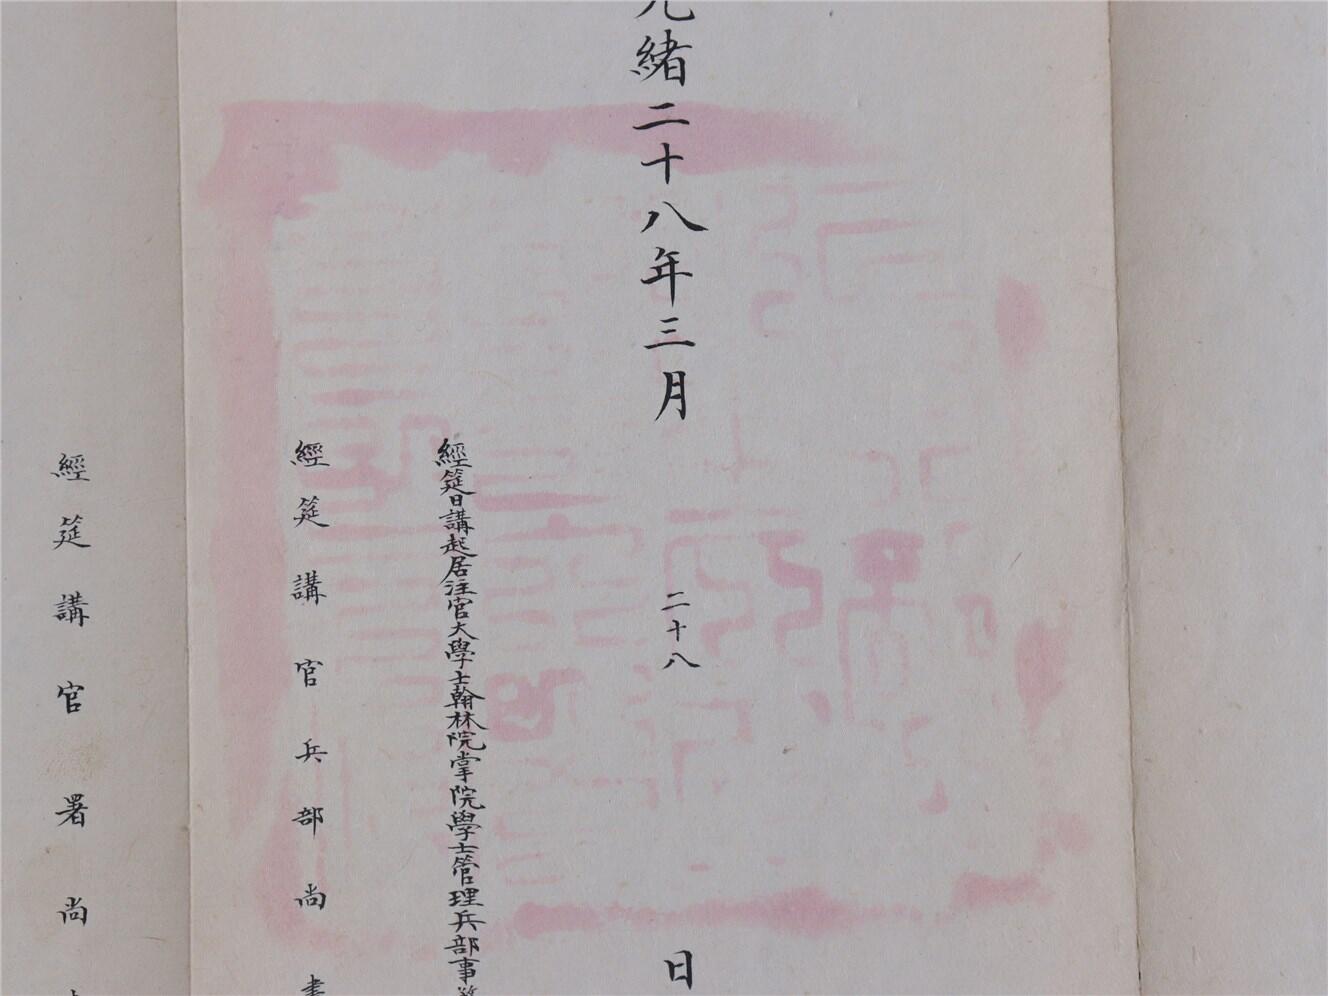 光緒二十八年三月 二十八 日
經筵日講起居注官大學士翰林院掌院學士管理兵部事
經筵講官兵部尚書
經筵講官署尚